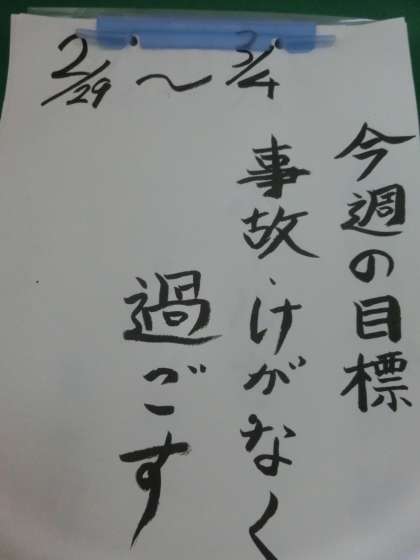 2/29～3/4
今週の目標
事故・けがなく
過ごす